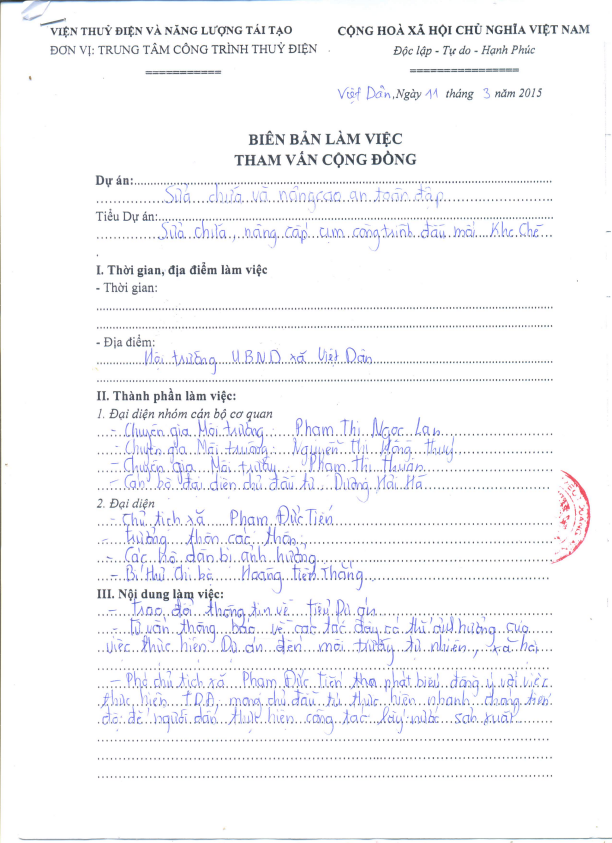 VIỆN THUỶ ĐIỆN VÀ NĂNG LƯỢNG TÁI TẠO
ĐƠN VỊ: TRUNG TÂM CÔNG TRÌNH THUỶ ĐIỆN
CỘNG HOÀ XÃ HỘI CHỦ NGHĨA VIỆT NAM
Độc lập - Tự do - Hạnh Phúc
Việt Dân, Ngày 11 tháng 3 năm 2015
BIÊN BẢN LÀM VIỆC
THAM VẤN CỘNG ĐỒNG
Dự án:
Sửa chữa và nâng cao an toàn đập
Tiểu Dự án:
Sửa chữa, nâng cấp cụm công trình đầu mối Khe Chè
I. Thời gian, địa điểm làm việc
- Thời gian:
- Địa điểm:
Hội trường UBND xã Việt Dân
II. Thành phần làm việc:
1. Đại diện nhóm cán bộ cơ quan
- Chuyên gia Môi trường Phạm Thị Ngọc Lan
- Chuyên gia Môi trường Nguyễn Thị Hồng Thuý
- Chuyên gia Môi trường Phạm Thị Thuận
- Cán bộ đại diện chủ đầu tư Dương Hải Hà
2. Đại diện
- Chủ tịch xã Phạm Đức Tiến
- Trưởng thôn các thôn,
- Các hộ dân bị ảnh hưởng
- Bí thư chi bộ Hoàng Tiến Thắng
III. Nội dung làm việc:
- Trao đổi thông tin về Tiểu Dự án
- Tư vấn thông báo về các tác động có thể ảnh hưởng của
việc thực hiện Dự án đến môi trường tự nhiên, xã hội
- Phó chủ tịch xã Phạm Đức Tiến phát biểu đồng ý với việc
thực hiện TDA, mong chủ đầu tư thực hiện nhanh đúng tiến
độ để người dân thực hiện công tác lấy nước sản xuất